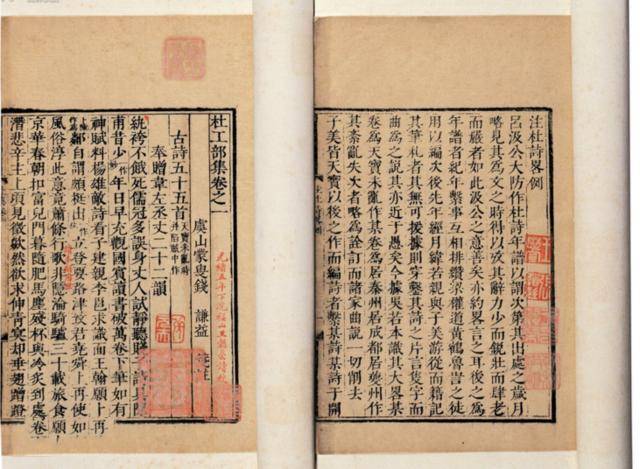 注杜詩畧例
呂汲公大防作杜詩年譜以謂次第其出處之歲月
略見其爲文之時得以攷其辭力少而銳壯而肆老
而嚴者如此汲公之意善矣亦約畧言之耳後之爲
年譜者紀年繫事互相排纘梁權道黃鶴魯訔之徒
用以編次後先年經月緯若親與子美游從而籍記
其筆札者其無可援據則穿鑿其詩之片言隻字而
曲爲之說其亦近于愚矣今據吳若本識其大畧某
卷爲天寶未亂作某卷爲居秦州居成都居夔州作
其紊亂失次者略爲詮訂而諸家曲說一切削
子美皆天寶以後之作而編詩者繫某詩于開
杜工部集卷之一
虞山蒙叟錢 謙益 箋註
古詩五十五首 天寶未亂時并陷賊中作
奉贈韋左丞丈二十二韻
紈袴不餓死儒冠多誤身丈人試靜聽賤子請具陳
甫昔少一作妙年日早充觀國賓讀書破萬卷下筆如有
神賦料楊雄敵詩看子建親李邕求識面王翰願卜
鄰自謂頗挺出立登要路津致君堯舜上再使
風俗淳此意竟蕭條行歌非隱淪騎驢三十載旅食
京華春朝扣富兒門暮隨肥馬塵殘杯與冷炙到處
潛悲辛主上頃見徵歘然欲求伸青冥却垂翅蹭蹬